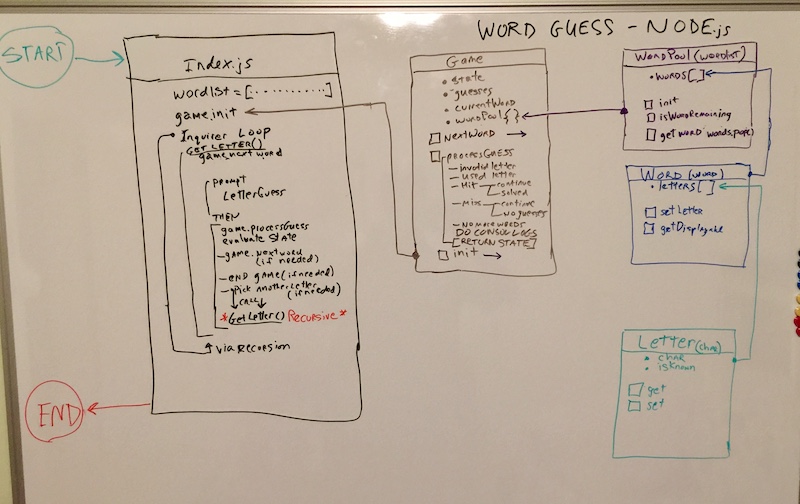 WORD GUESS - NODE.js
START
Index.js
wordlist = [..........]
game.init
• Inquirer LOOP
GETLETTER()
game.nextword
PROMPT
LetterGuess
THEN
game.processGuess
evaluate STATE
- game.nextword
(if needed)
- END game (if needed)
- Pick Another Letter
(if needed)
CALL
*GetLetter() Recursive*
via Recursion
END
Game
• state
• guesses
• currentWord
• wordPool { }
NextWord →
processGUESS
- invalid letter
- used letter
- Hit - continue
solved
- Miss - continue
NO guesses
- No more words
DO CONSOL LOGS
[RETURN STATE]
init →
WordPool (wordlist)
• WORDS[ ]
init
isWordRemaining
getWORD words.pop()
WORD (word)
• letters [ ]
setLetter
getDisplayable
Letter (char)
• char
• isKnown
get
set